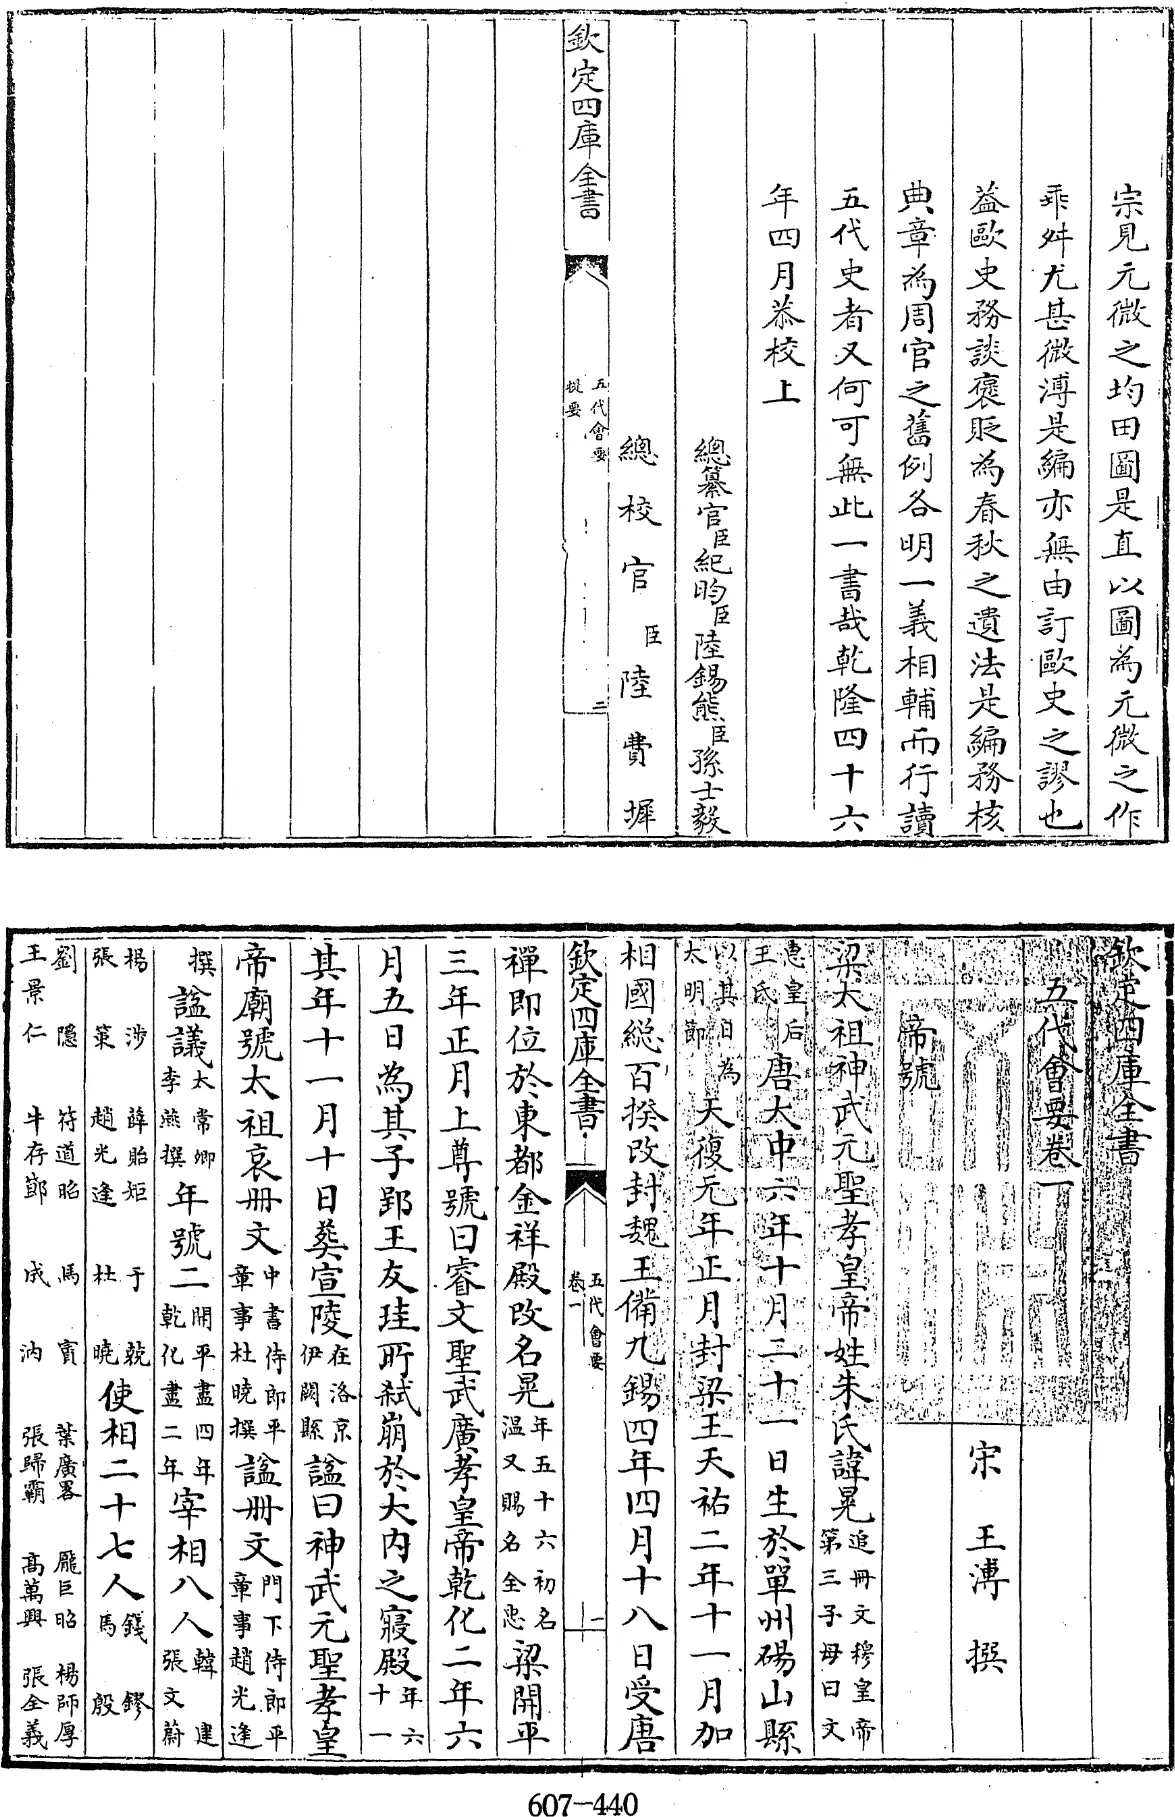 宗見元微之均田圖是直以圖為元微之作
乖舛尤甚微溥是編亦無由訂歐史之謬也
葢歐史務談褒貶為春秋之遺法是編務核
典章為周官之舊例各明一義相輔而行讀
五代史者又何可無此一書哉乾隆四十六
年四月恭校上
總纂官臣紀昀臣陸錫熊臣孫士毅
總校官臣陸費墀
欽定四庫全書
五代會要
提要
二
欽定四庫全書
五代會要卷一
宋 王溥 撰
帝號
梁太祖神武元聖孝皇帝姓朱氏諱晃追冊文穆皇帝第三子母曰文
惠皇后王氏唐大中六年十月二十一日生於單州碭山縣
以其日為大明節天復元年正月封梁王天祐二年十一月加
相國總百揆改封魏王備九錫四年四月十八日受唐
欽定四庫全書
五代會要
卷一
一
禪即位於東都金祥殿改名晃年五十六初名溫又賜名全忠梁開平
三年正月上尊號曰睿文聖武廣孝皇帝乾化二年六
月五日為其子郢王友珪所弒崩於大內之寢殿年六十一
其年十一月十日葬宣陵在洛京伊闕縣諡曰神武元聖孝皇
帝廟號太祖哀冊文中書侍郎平章事杜曉撰諡冊文門下侍郎平章事趙光逢
撰諡議太常卿李燕撰年號二開平盡四年乾化盡二年宰相八人韓建 張文蔚
楊涉 薛貽矩 于兢 張策 趙光逢 杜曉使相二十七人錢鏐 馬殷
劉隱 符道昭 馬賨 葉廣畧 龎巨昭 楊師厚
王景仁 牛存節 成汭 張歸霸 高萬興 張全義
607-440